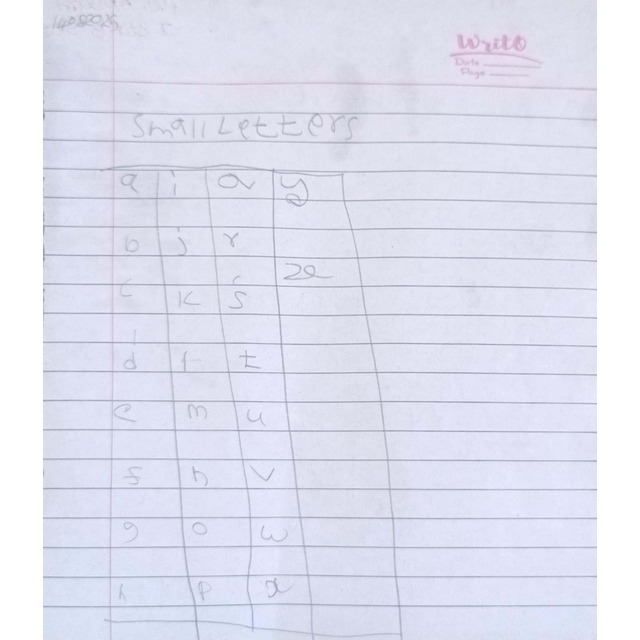 14082025
Write
Date
Page
Small Letters
a i q y
b j r
z
c k s
d l t
e m u
f n v
g o w
h p x